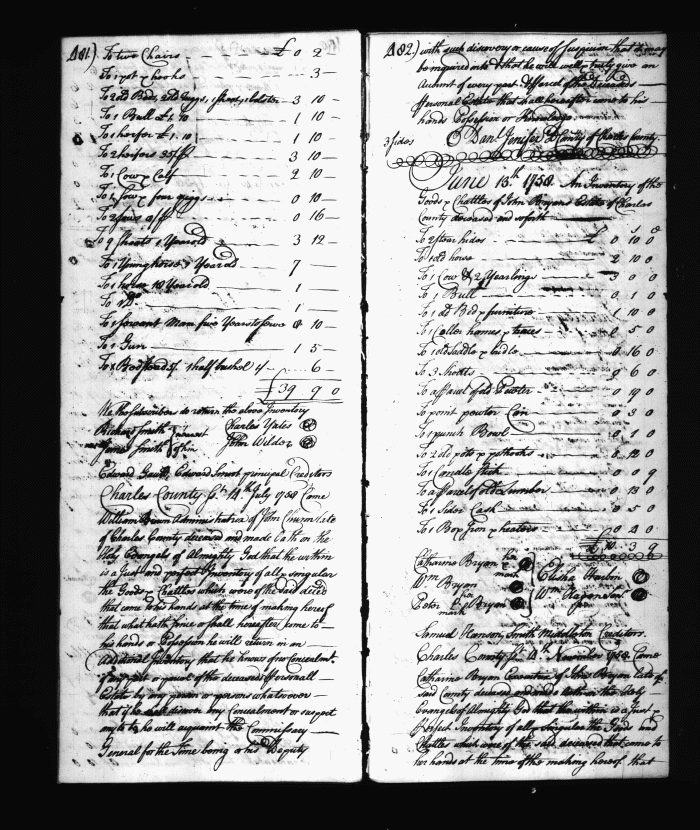 481) To two Chairs - - - £ 0 2 -
To 1 pot & hooks 3 -
3 10 -
To 1 Bull £1.10 1 10 -
To 1 heifer £1.10 1 10 -
To 2 heifers 35/ps 3 10 -
To 1 Cow & Calf 2 10 -
To 1 Sow & four piggs 0 10 -
To 2 Sows 8/ps 0 16 -
To 9 Shoats 1 Year old 3 12 -
To 1 Young horse 3 Year old 7 -
To 1 horse 10 Year old 1 -
To 1 Do. 1 -
To 1 Servant Man five Years to Serve 8 10 -
To 1 Gun 1 5 -
To 1 half bushel 6 -
£39 9 0
We the Subscribers do return the above Inventory
Richard Smith nearest Charles Yates
James Smith of kin John Wilder
Edward Smoot principal Creditors
Charles County Sc. 14th July 1758 Came
William Administrator of John late
of Charles County deceased and made Oath on the
Holy Evangels of Almighty God that the within
is a Just and perfect Inventory of all & singular
the Goods & Chattles which were of the said deced
that came to his hands at the time of making hereof
that what hath since or shall hereafter come to
his hands or Possession he will return in an
Additional Inventory that he knows of no Concealmt.
of any part or parcel of the deceaseds Personall
Estate by any person or persons whatsoever
that if he shall discover any Concealment or suspect
any to be he will acquaint the Commissary
General for the time being or his Deputy
482) with such discovery or cause of suspicion that it may
be inquired into & that he will well & truly give an
Account of every part & parcel of the deceaseds
Personal Estate that shall hereafter come to his
hands Possession or Knowledge
3 sides Danl. Jenifer D Comty of Charles County
June 13th. 1758. An Inventory of the
Goods & Chattles of John Bryan Estate of Charles
County deceased
£ S D
To 2 Steer hides 0 10 0
To 1 old horse 2 10 0
To 1 Cow & 2 Yearlings 3 0 0
To 1 Bull 0 1 0
To 1 old Bed & furniture 1 10 0
To 1 Coller hames & traces 0 5 0
To 1 old Saddle & bridle 0 16 0
To 3 Shoats 0 6 0
To a parcel of old Pewter 0 19 0
To 1 point pewter Can 0 3 0
To 1 punch Bowl 0 1 0
To 2 old pots & pothooks 0 12 0
To 1 Candle Stick 0 0 9
To a parcel of old Lumber 0 13 0
To 1 Sider Cask 0 5 0
To 1 Box Iron & heaters 0 2 0
3 9
Catharine Bryan her mark Elisha Harbon
Wm Bryan Wm
Peter Bryan his mark
Samuel Hanson, Smith Middleton Creditors.
Charles County Sc. November 1758 Came
Catharine Bryan Executrix of John Bryan late of
said County deceased and made oath on the Holy
Evangels of Almighty God that the within is a Just &
perfect Inventory of all & singular the Goods and
Chattles which were of the said deceased that came to
her hands at the time of the making hereof that